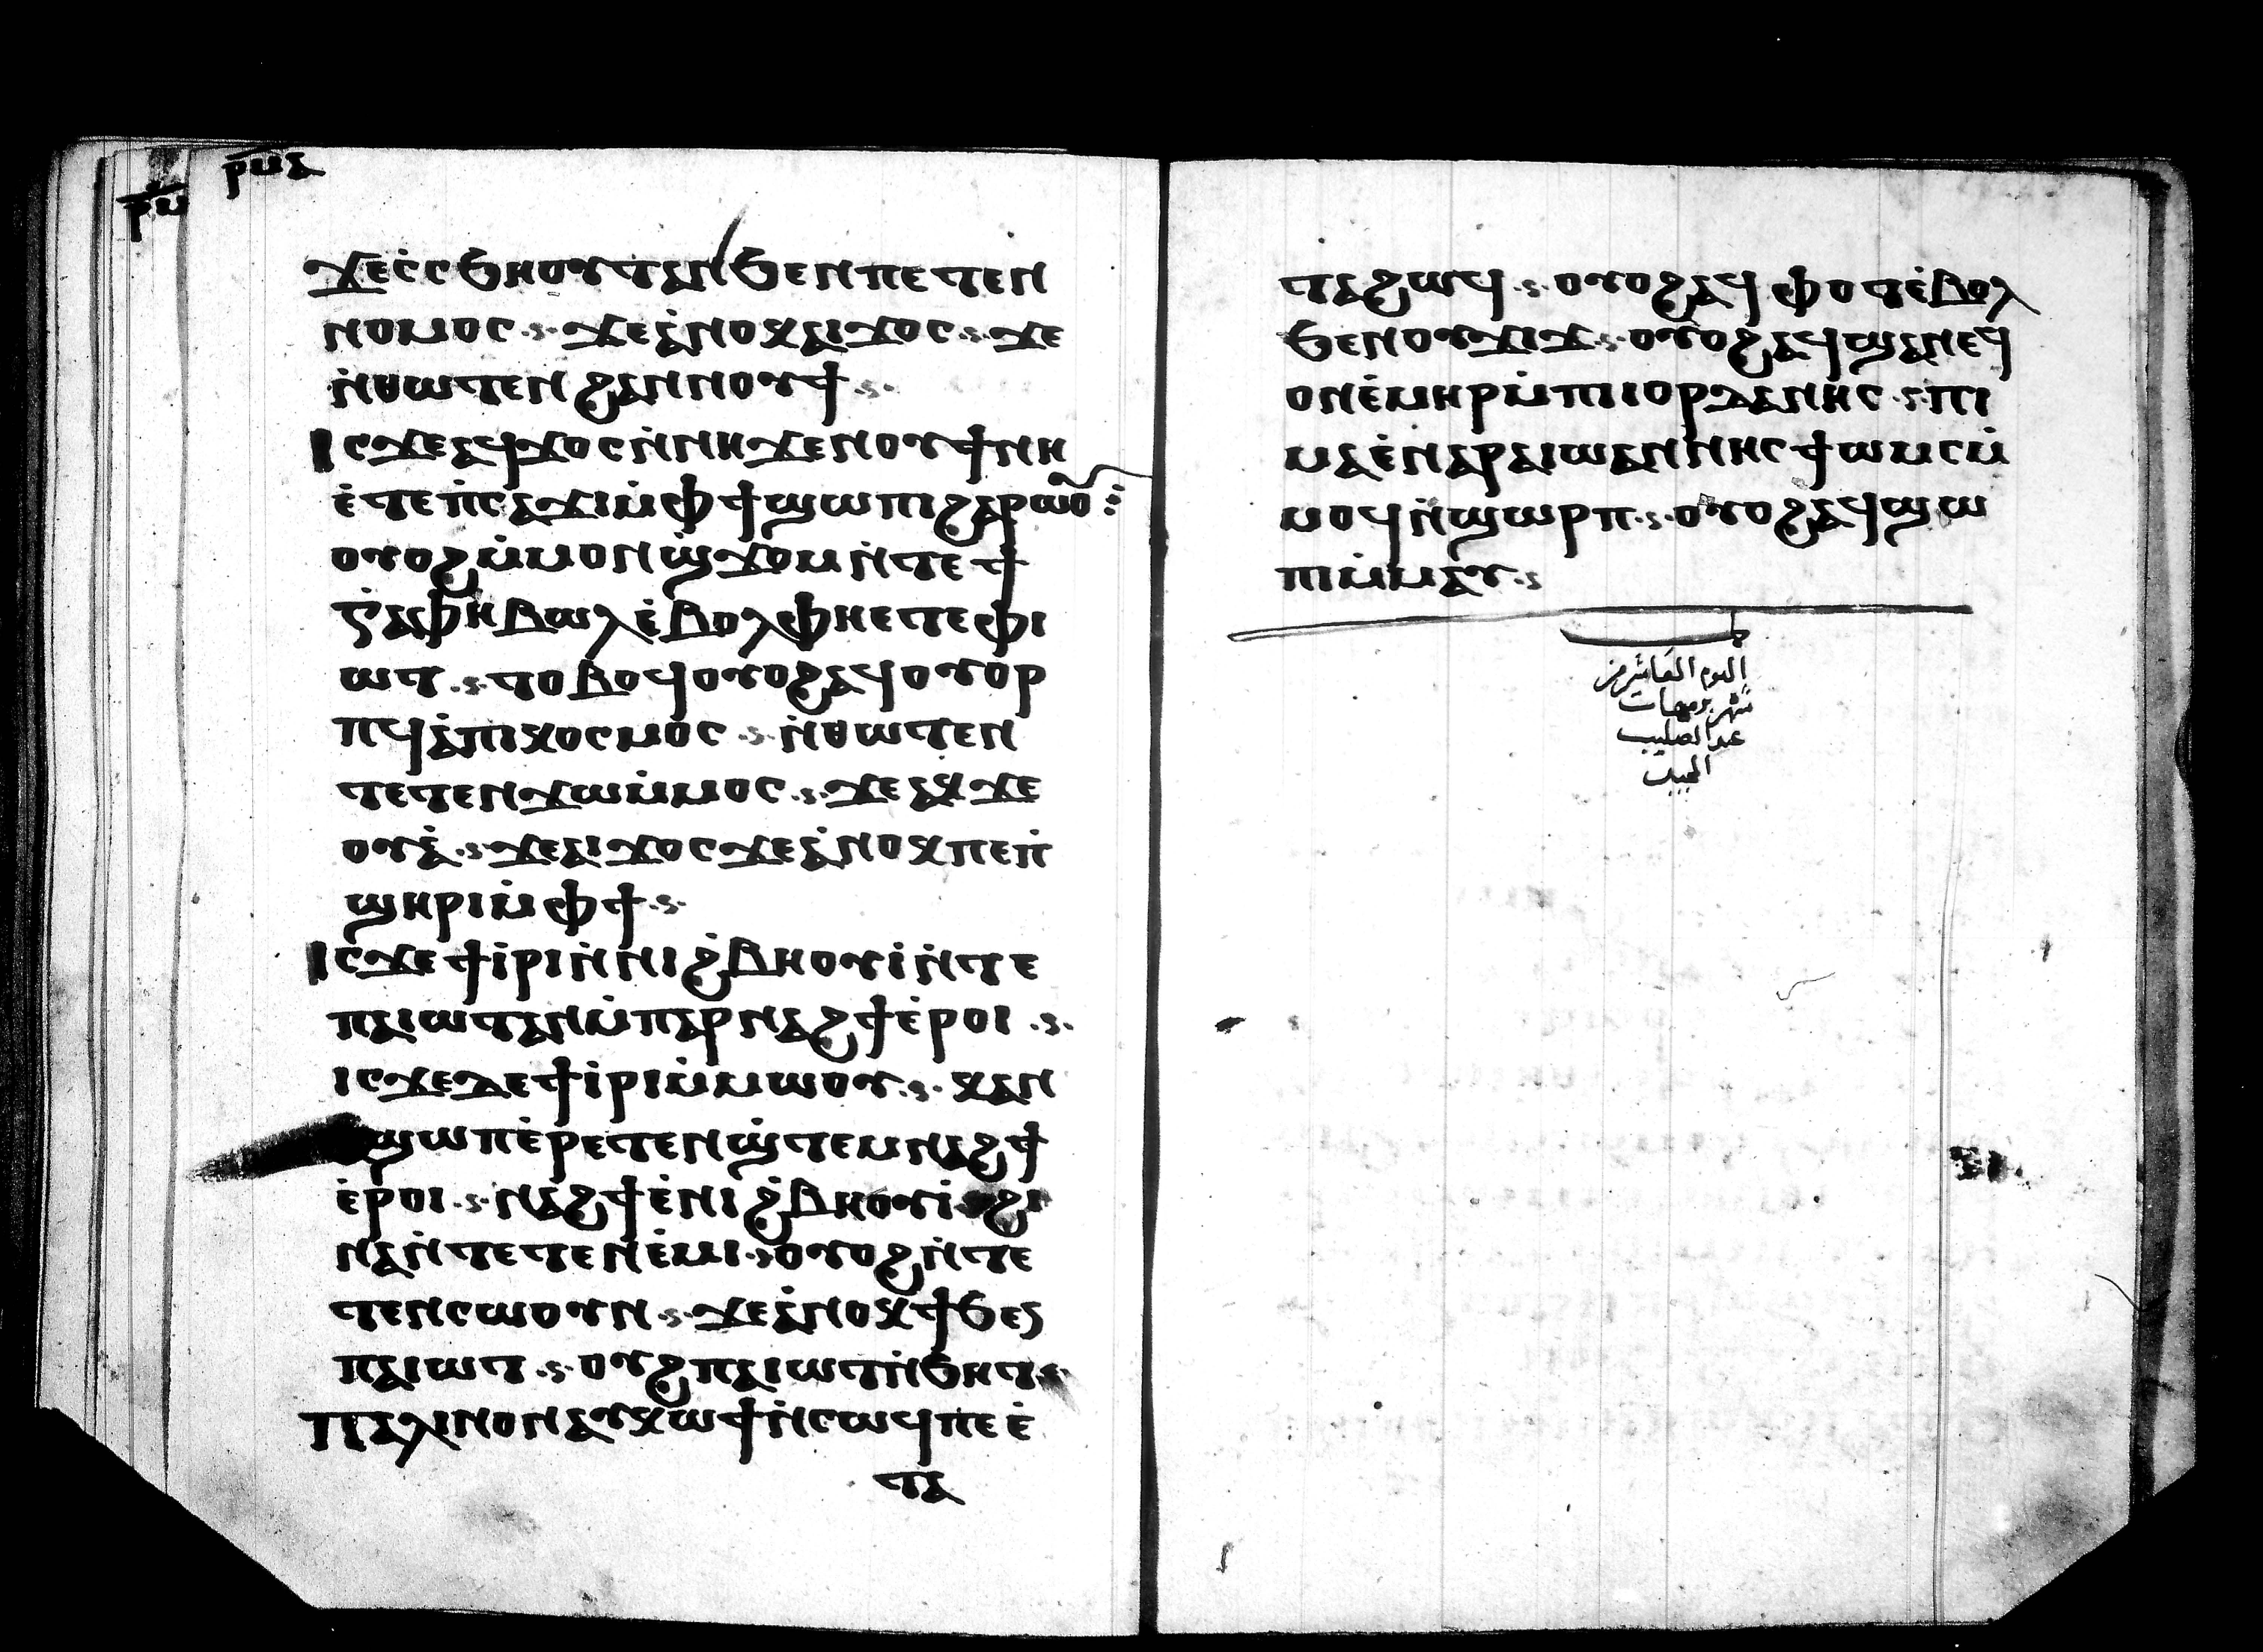 ⲣⲙⲁ
ⲣⲙ
ϫⲉⲥ̇ⲥϧⲏⲟⲩⲧⲁⲛϧⲉⲛⲡⲉⲧⲉⲛ
ⲛⲟⲙⲟⲥ ϫⲉⲁ̇ⲛⲟⲕⲁⲓϫⲟⲥ ϫⲉ
ⲛ̇ⲑⲱⲧⲉⲛϩⲁⲛⲛⲟⲩϯ
ⲓⲥϫⲉⲁϥϫⲟⲥⲛ̇ⲛⲏϫⲉⲛⲟⲩϯⲛⲏ
ⲉ̇ⲧⲉⲡ̇ⲥⲁϫⲓⲙ̇ⲫϯϣⲱⲡⲓϩⲁⲣⲱⲟⲩ
ⲟⲩⲟϩⲙ̇ⲙⲟⲛϣ̇ϫⲟⲙⲛ̇ⲧⲉϯ
ⲅ̇ⲣⲁⲫⲏⲃⲱⲗⲉ̇ⲃⲟⲗⲫⲏⲉⲧⲉⲫⲓ
ⲱⲧ ⲧⲟⲩⲃⲟϥⲟⲩⲟϩⲁϥⲟⲩⲟⲣ
ⲡϥⲁ̇ⲡⲓⲕⲟⲥⲙⲟⲥ ⲛ̇ⲑⲱⲧⲉⲛ
ⲧⲉⲧⲉⲛϫⲱⲙ̇ⲙⲟⲥ ϫⲉⲁⲕϫⲉ
ⲟⲩⲁ̇ ϫⲉⲁⲓϫⲟⲥϫⲉⲁ̇ⲛⲟⲕⲡⲉⲡ̇
ϣⲏⲣⲓⲙ̇ⲫϯ
ⲓⲥϫⲉϯⲓ̇ⲣⲓⲛ̇ⲛⲓϩ̇ⲃⲏⲟⲩⲓ̇ⲛ̇ⲧⲉ
ⲡⲁⲓⲱⲧⲁⲛⲙ̇ⲡⲁⲣⲛⲁϩϯⲉ̇ⲣⲟⲓ
ⲓⲥϫⲉⲇⲉϯⲓ̇ⲣⲓⲙ̇ⲙⲱⲟⲩ ⲕⲁⲛ
ϣⲱⲡⲉ̇ⲣⲉⲧⲉⲛϣ̇ⲧⲉⲙⲛⲁϩϯ
ⲉ̇ⲣⲟⲓ ⲛⲁϩϯⲉ̇ⲛⲓϩ̇ⲃⲏⲟⲩⲓ̇ ϩⲓ
ⲛⲁⲛ̇ⲧⲉⲧⲉⲛⲉ̇ⲙⲓ ⲟⲩⲟϩⲛ̇ⲧⲉ
ⲧⲉⲛⲥⲱⲟⲩⲛ ϫⲉⲁ̇ⲛⲟⲕϯϧⲉⲛ
ⲡⲁⲓⲱⲧ ⲟⲩϩⲡⲁⲓⲱⲧⲛ̇ϧⲏⲧ
ⲡⲁⲗⲓⲛⲟⲛⲁⲩⲕⲱϯⲛ̇ⲥⲱϥⲡⲉⲉ̇
ⲧⲁ
ⲧⲁϩⲱϥ ⲟⲩⲟϩⲁϥⲫⲟⲧⲉ̇ⲃⲟⲗ
ϧⲉⲛⲟⲩϫⲓϫ ⲟⲩⲟϩⲁϥϣⲁⲛⲉϥ
ⲟⲛⲉ̇ⲙⲏⲣⲙ̇ⲡⲓⲓⲟⲣⲇⲁⲛⲏⲥ ⲡⲓ
ⲙⲁⲉ̇ⲛⲁⲣⲁⲓⲱⲁⲛⲛⲏⲥϯⲱⲙⲥⲙ̇
ⲙⲟϥⲛ̇ϣⲱⲣⲡ ⲟⲩⲟϩⲁϥϣⲱ
ⲡⲓⲙ̇ⲙⲁⲩ
اليوم العاشر من
شهر برمهات
عيد الصليب
المجيد